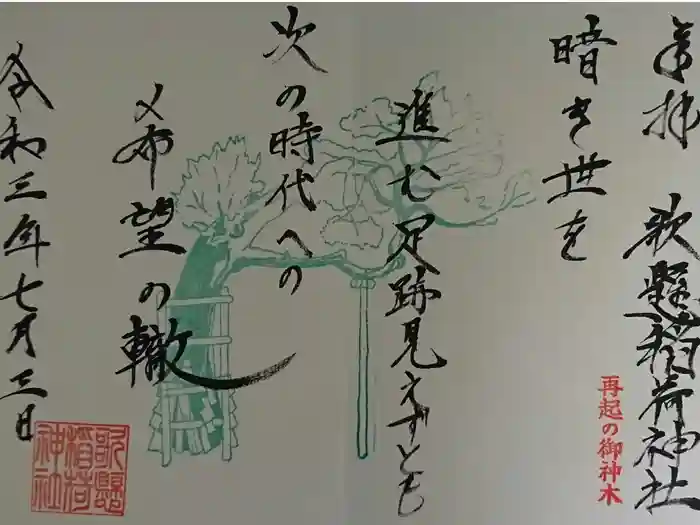 奉拝 歌懸稲荷神社
再起の御神木
暗き世を
進む足跡見えずとも
次の時代への
希望の轍
令和三年七月三日
歌懸
稲荷
神社